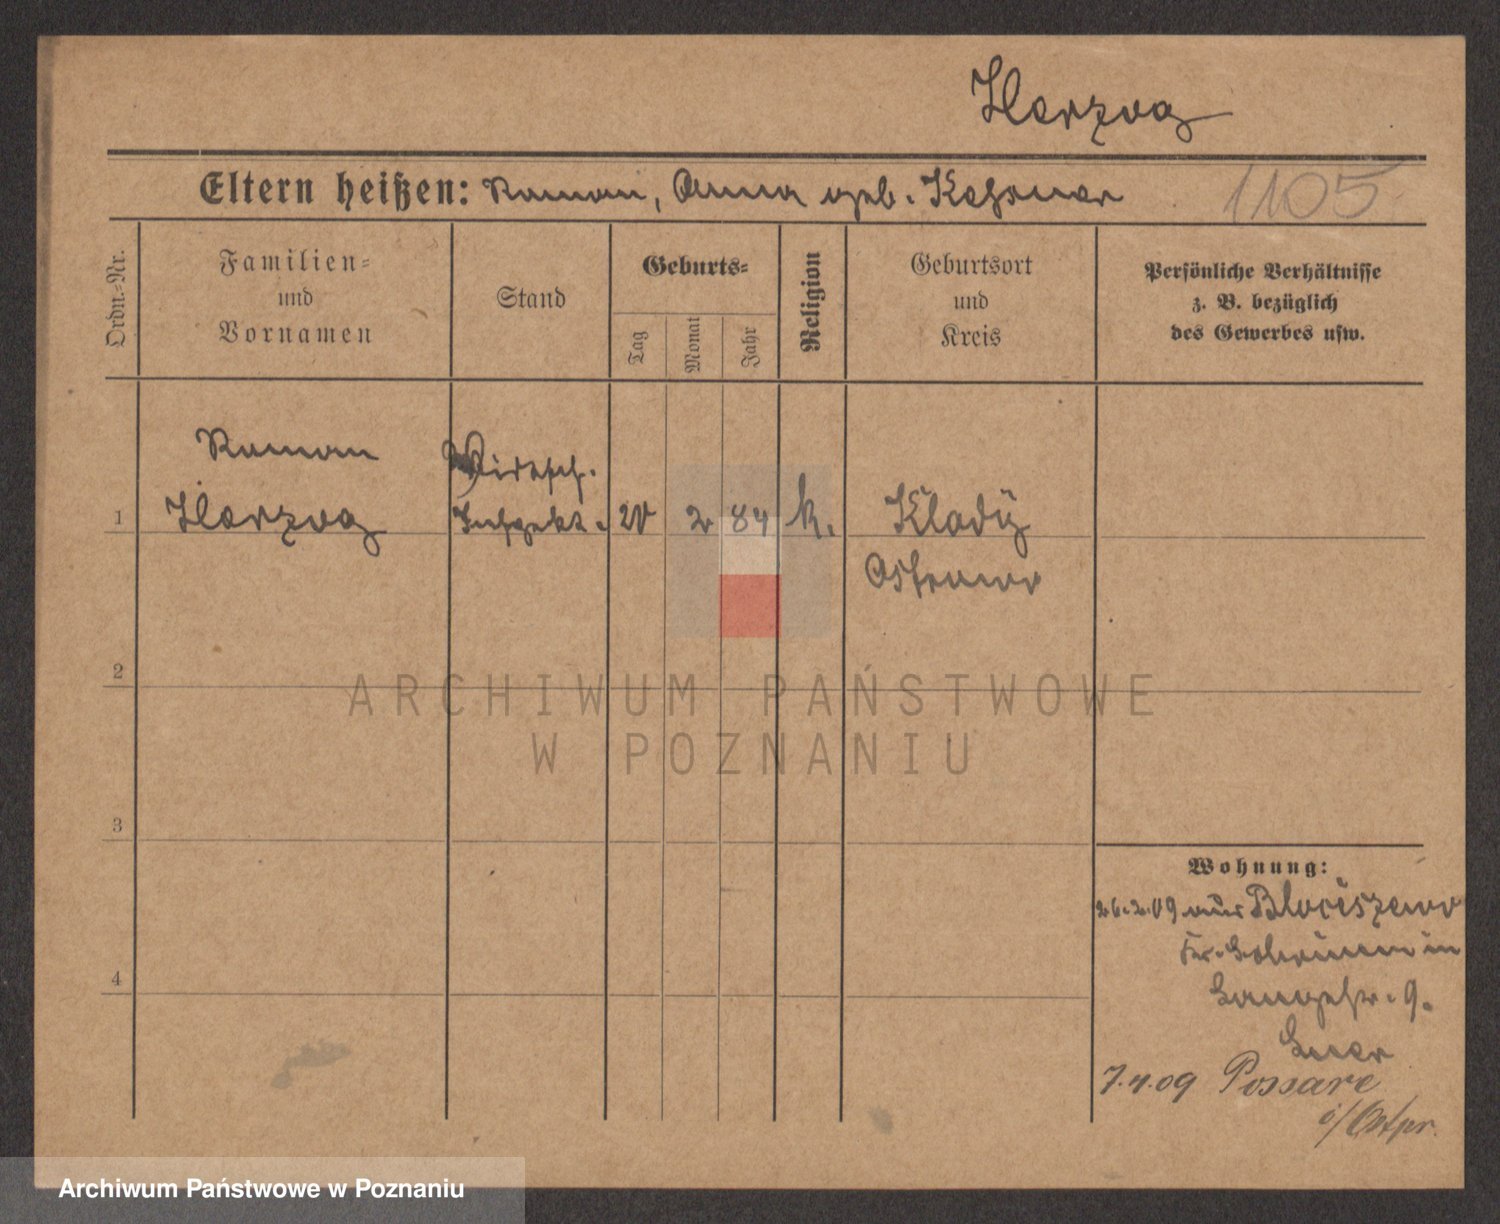 Herzog
Eltern heißen: Roman, Anna geb.
1105
Ordn.-Nr.
Familien-
und
Vornamen
Stand
Geburts-
Tag
Monat
Jahr
Religion
Geburtsort
und
Kreis
Persönliche Verhältnisse
z. B. bezüglich
des Gewerbes usw.
Roman
Wirtsch.
1 Herzog Inspekt. 20 2 84 k. Klady
Ostrowo
2
ARCHIWUM PAŃSTWOWE
W POZNANIU
3
Wohnung:
26.2.09 aus Blociszewo
Kr. Schrimm in
4
7.4.09 Possare
i/Ostpr.
Archiwum Państwowe w Poznaniu